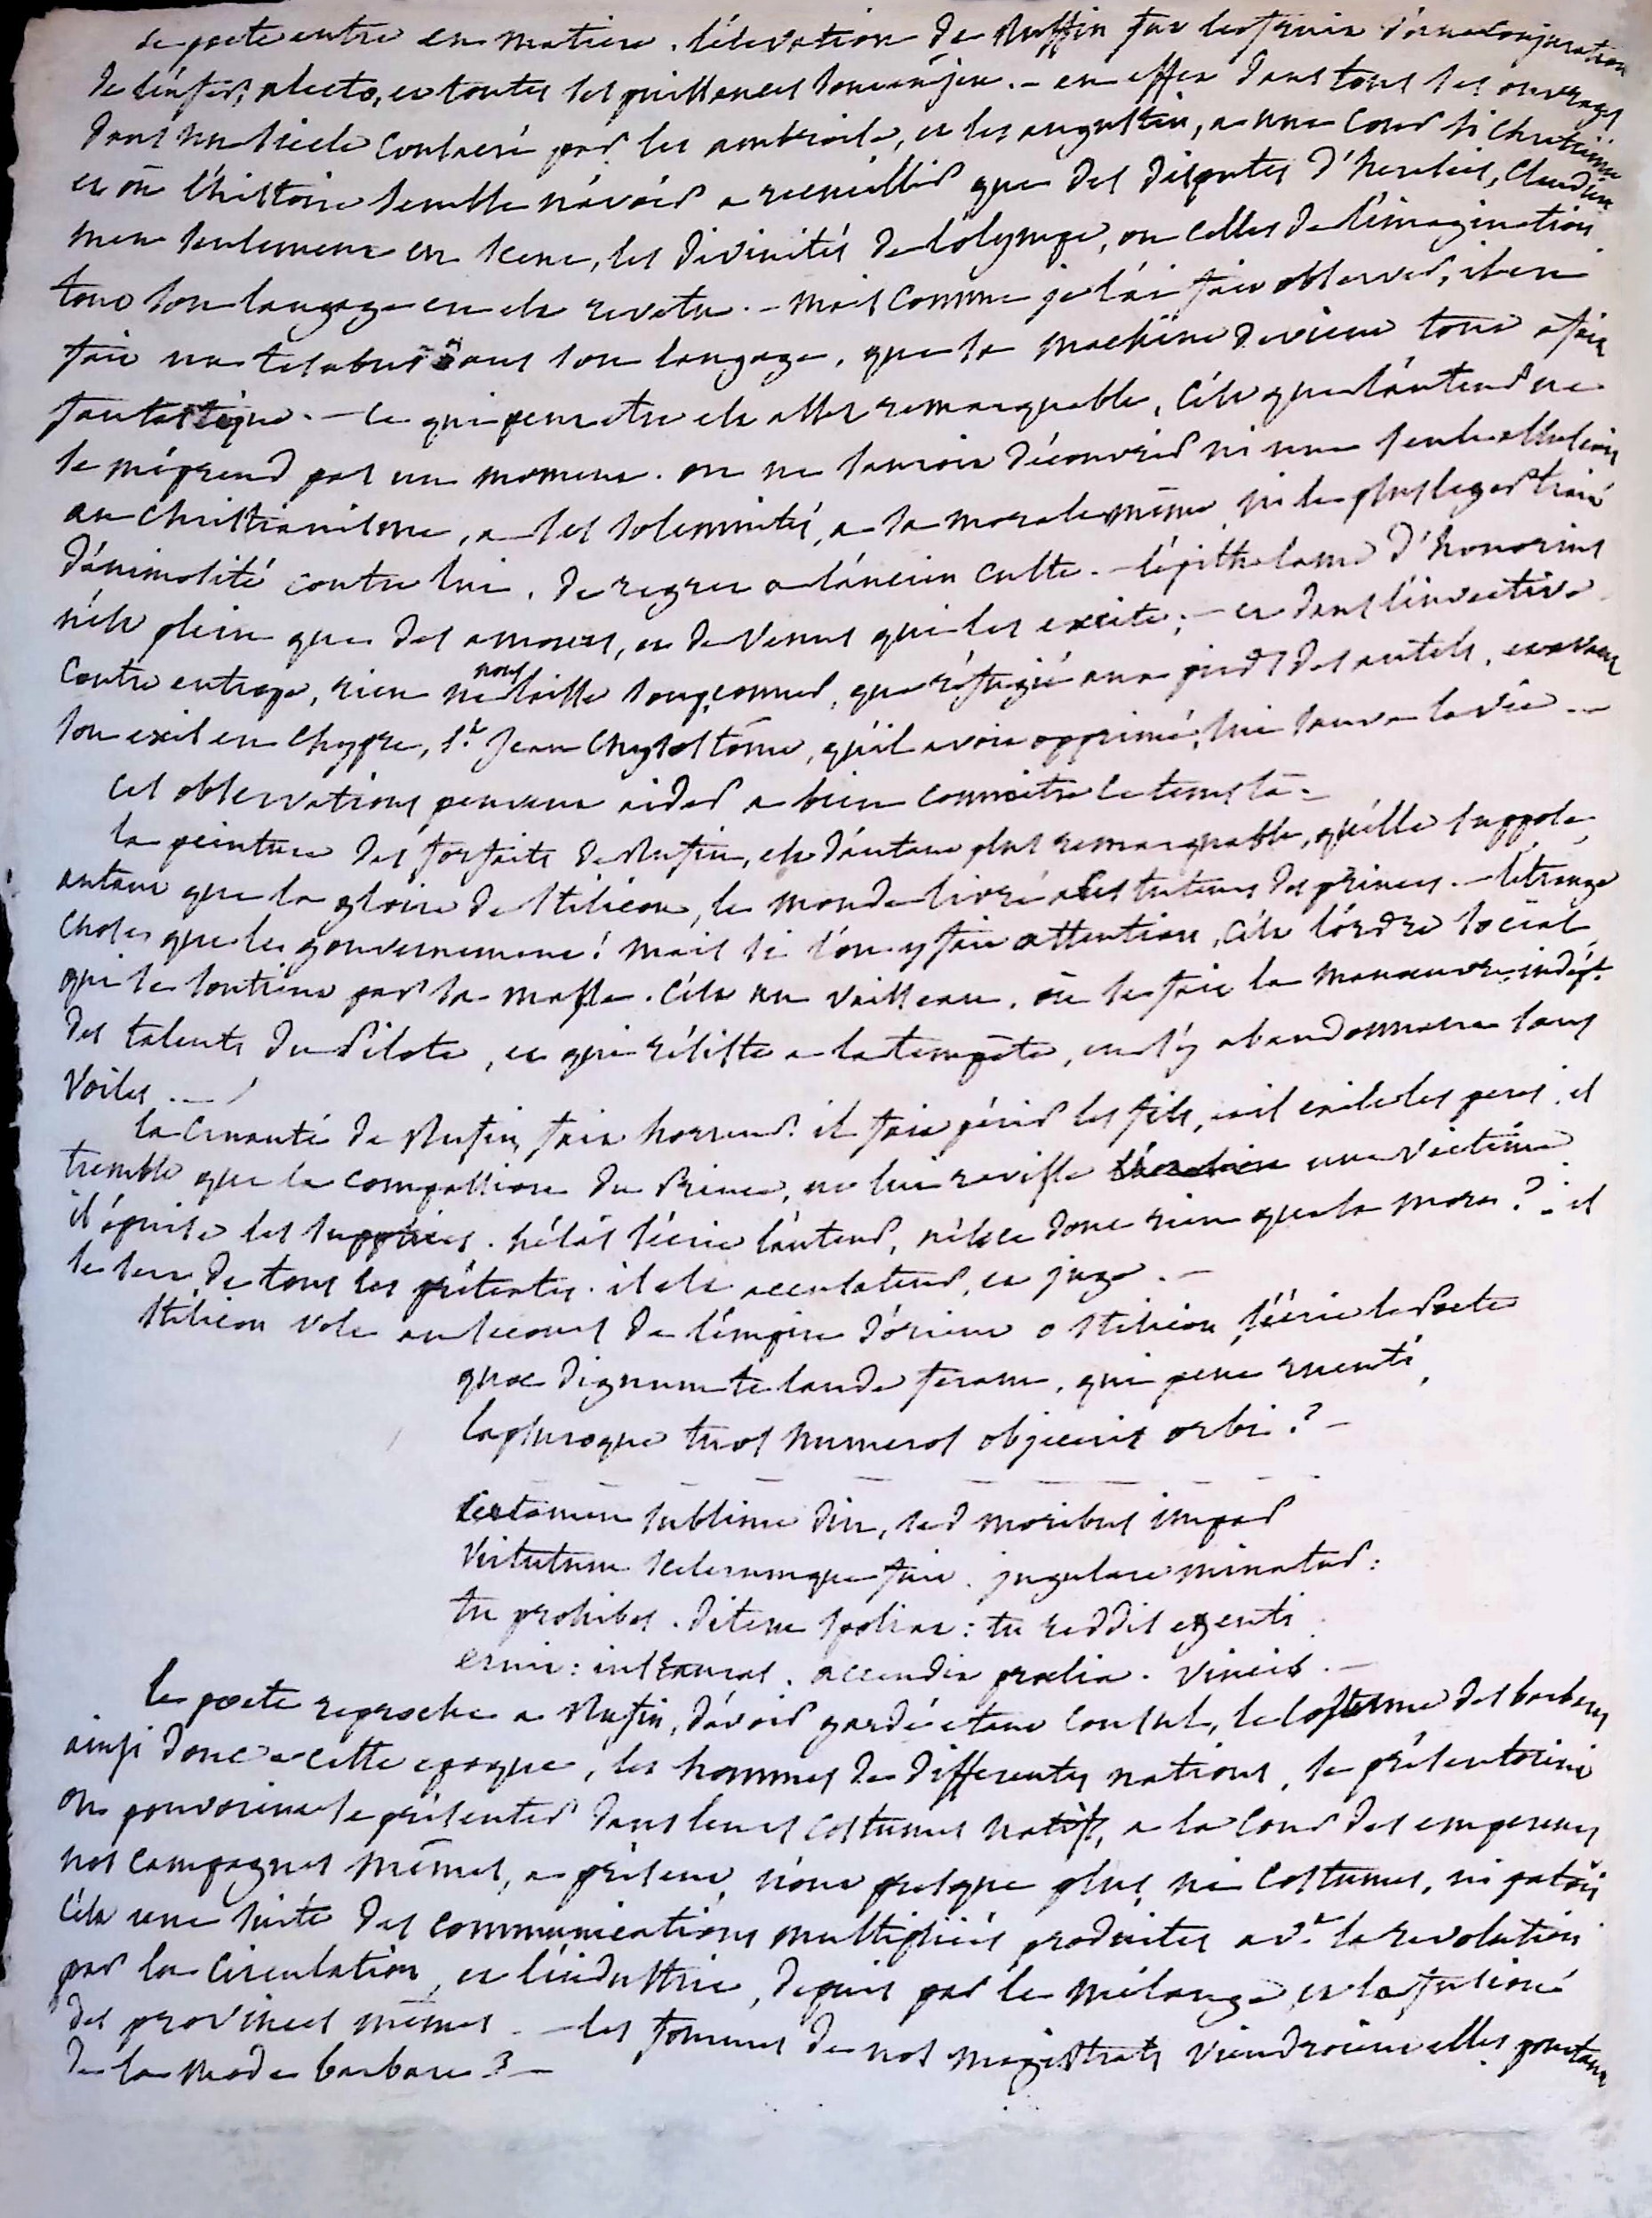 le poete entre en matiere. l'élévation de Ruffin fut le fruit d'une conjuration
de l'enfer; alecto, et toutes les puissances sont en jeu. - en effet dans tous ses ouvrages
dans un siecle consacré par les ambroise, et les augustin, a une cour si chretienne
et ou l'histoire semble n'avoir a recueillir que des disputes d'heresies, Claudien
met seulement en scene, les divinités de l'olympe, ou celles de l'imagination
tout son langage en est revetu. - mais comme je l'ai fait observer, il en
fait un tel abus dans son langage, que la machine devient tout a fait
fantastique. - ce qui peut etre est assez remarquable, c'est que l'auteur ne
se méprend pas un moment. on ne sauroit découvrir ni une seule allusion
au christianisme, a ses solemnités, a sa morale même, ni le plus leger trait
d'animosité contre lui, de regret a l'ancien culte. - l'épithalame d'honorius
n'est plein que des amours, et de Venus qui les excite; - et dans l'invective
contre eutrope, rien ne nous laisse soupçonner, que réfugié aux pieds des autels, et avant
son exil en chypre, St. Jean Chrysostôme, qu'il avoit opprimé, lui sauva la vie. -
ces observations peuvent aider a bien connoitre ce tems là. -
la peinture des forfaits de Rufin, est d'autant plus remarquable, qu'elle suppose,
autant que la gloire de Stilicon, le monde livré a ces tuteurs des princes. - l'étrange
chose que le gouvernement! mais si l'on y fait attention, c'est l'ordre social
qui se soutient par sa masse. c'est un vaisseau, ou se fait la manoeuvre indépt.
des talents du Pilote, et qui résiste a la tempête, en s'y abandonnant sans
voiles. -
la cruauté de Rufin, fait horreur. il fait périr les fils, et il exile les peres. il
tremble que la compassion du Prince, ne lui ravisse une victime
il épuise les supplices. hélas s'écrie l'auteur, n'est ce donc rien que la mort? - il
se sert de tous les prétextes. il est accusateur, et juge. -
Stilicon vole au secours de l'empire d'orient o Stilicon, s'écrie le Poete
quae dignum te laude feram, qui pene ruenti,
lapsuroque tuos humeros objeceris orbi? -
Certamen sublime diu, sed moribus impar
virtutum scelerumque fuit. jugulare minatur:
tu prohibes. ditem spoliat: tu reddis egenti
eruit: instauras. accendit praelia. vincis. -
le poete reproche a Rufin, d'avoir gardé etant consul, le costume des barbares
ainsi donc a cette epoque, les hommes de differentes nations, se présentoient
ou pouvoient se présenter dans leurs costumes natifs, a la cour des empereurs
nos campagnes mêmes, a présent, n'ont presque plus, ni costumes, ni patois
c'est une suite des communications multipliées, produites avt. la revolution
par la circulation, et l'industrie, depuis par le mélange, et la fusion
des provinces mêmes. - les femmes de nos magistrats viendroient elles pourtant
de la mode barbare? -